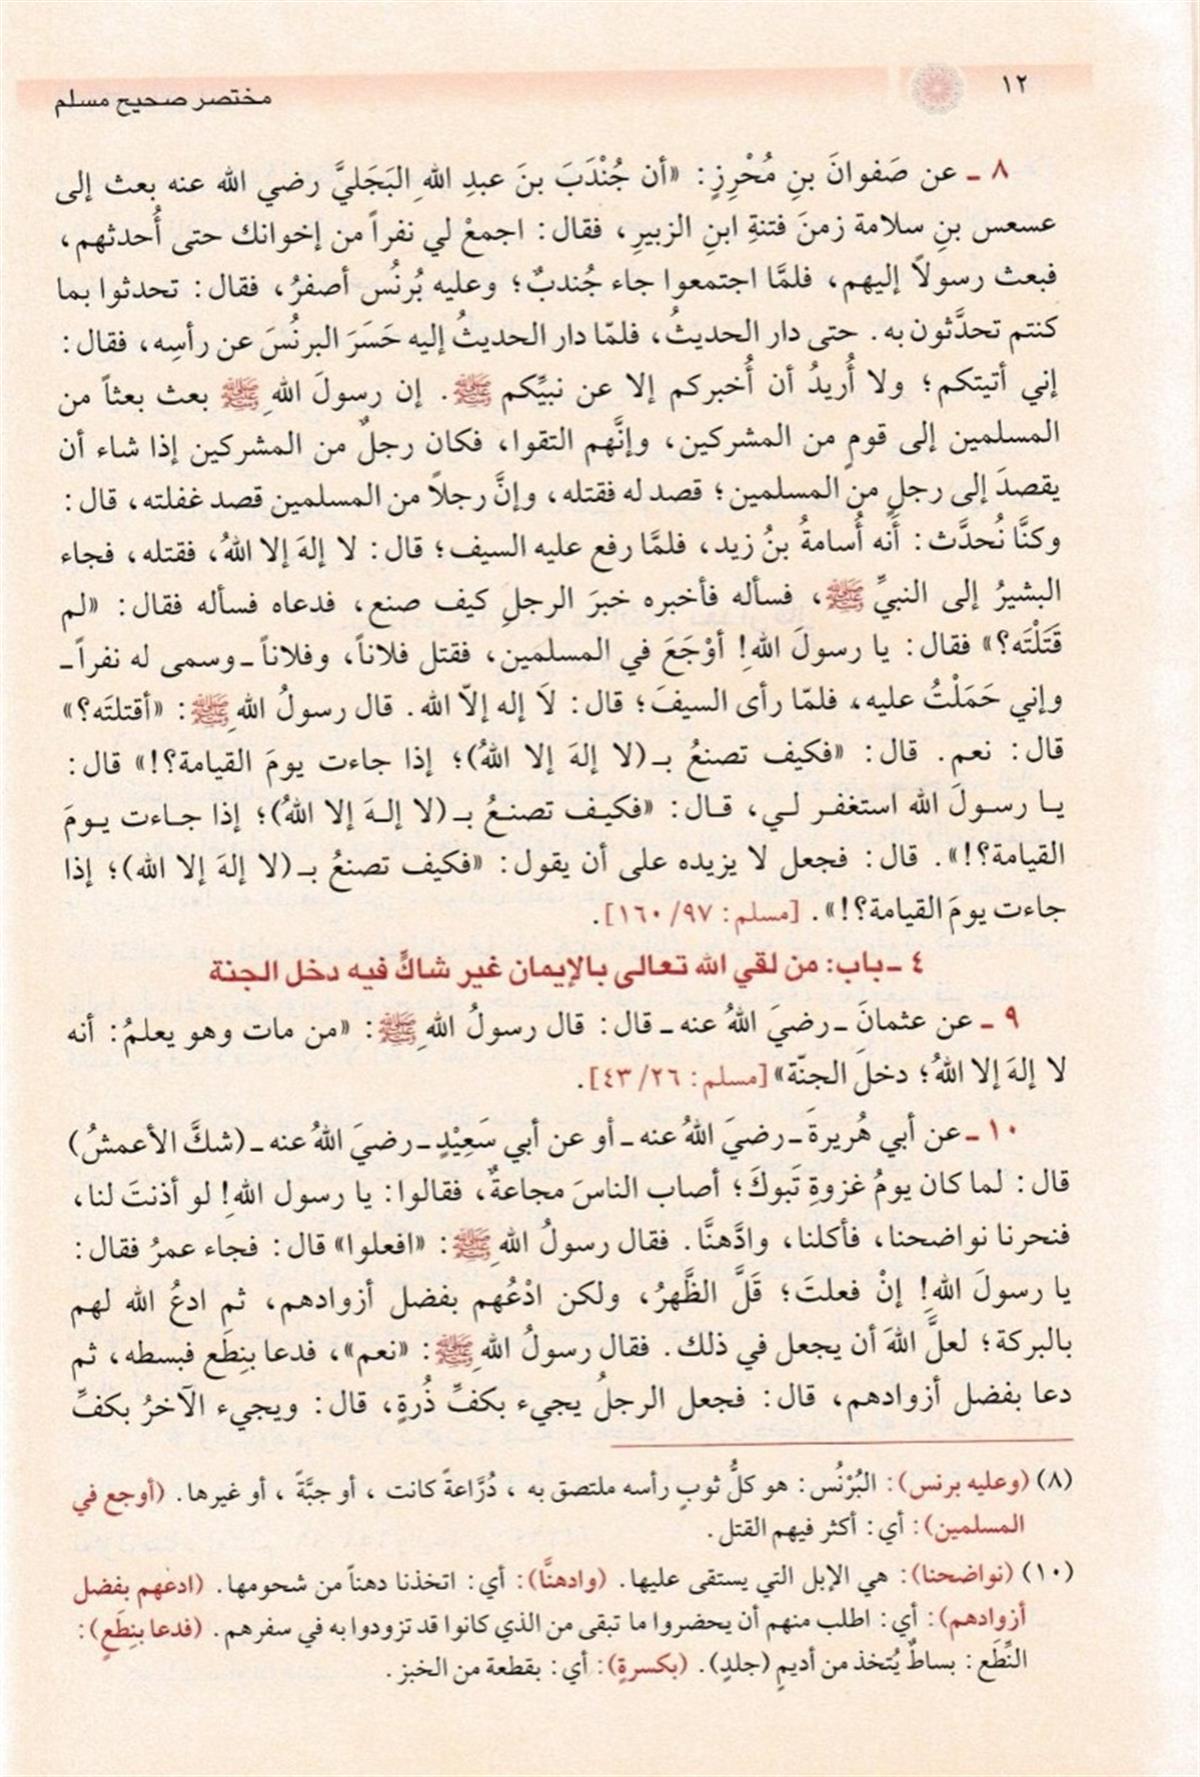 ١٢
مختصر صحيح مسلم
٨ ـ عن صَفوانَ بنِ مُحْرِزٍ: «أن جُنْدَبَ بنَ عبدِ اللهِ البَجَليَّ رضي الله عنه بعث إلى
عسعس بنِ سلامة زمنَ فتنةِ ابنِ الزبيرِ، فقال: اجمعْ لي نفراً من إخوانك حتى أُحدثهم،
فبعث رسولاً إليهم، فلمَّا اجتمعوا جاء جُندبٌ؛ وعليه بُرنُس أصفرُ، فقال: تحدثوا بما
كنتم تحدَّثون به. حتى دار الحديثُ، فلمّا دار الحديثُ إليه حَسَرَ البرنُسَ عن رأسِه، فقال:
إني أتيتكم؛ ولا أُريدُ أن أُخبركم إلا عن نبيِّكم ﷺ. إن رسولَ اللهِ ﷺ بعث بعثاً من
المسلمين إلى قومٍ من المشركين، وإنَّهم التقوا، فكان رجلٌ من المشركين إذا شاء أن
يقصدَ إلى رجلٍ من المسلمين؛ قصد له فقتله، وإنَّ رجلاً من المسلمين قصد غفلته، قال:
وكنَّا نُحدَّث: أنه أُسامةُ بنُ زيد، فلمَّا رفع عليه السيف؛ قال: لا إلهَ إلا اللهُ، فقتله، فجاء
البشيرُ إلى النبيِّ ﷺ، فسأله فأخبره خبرَ الرجلِ كيف صنع، فدعاه فسأله فقال: «لم
قَتَلْتَه؟» فقال: يا رسولَ اللهِ! أوْجَعَ في المسلمين، فقتل فلاناً، وفلاناً ـ وسمى له نفراً ـ
وإني حَمَلْتُ عليه، فلمّا رأى السيفَ؛ قال: لاَ إله إلاّ الله. قال رسولُ اللهِ ﷺ: «أقتلتَه؟»
قال: نعم. قال: «فكيف تصنعُ بـ (لا إلهَ إلا اللهُ)؛ إذا جاءت يومَ القيامة؟!» قال:
يا رسولَ الله استغفر لي، قال: «فكيف تصنعُ بـ (لا إلهَ إلا اللهُ)؛ إذا جاءت يومَ
القيامة؟!». قال: فجعل لا يزيده على أن يقول: «فكيف تصنعُ بـ (لا إلهَ إلا الله)؛ إذا
جاءت يومَ القيامة؟!». [مسلم: ٩٧/ ١٦٠].
٤ ـ باب: من لقي الله تعالى بالإيمان غير شاكٍّ فيه دخل الجنة
٩ ـ عن عثمانَ ـ رضيَ اللهُ عنه ـ قال: قال رسولُ اللهِ ﷺ: «من مات وهو يعلمُ: أنه
لا إلهَ إلا اللهُ؛ دخلَ الجنّة» [مسلم: ٢٦/ ٤٣].
١٠ ـ عن أبي هُريرةَ ـ رضيَ اللهُ عنه ـ أو عن أبي سَعِيْدٍ ـ رضيَ اللهُ عنه ـ (شكَّ الأعمشُ)
قال: لما كان يومُ غزوةِ تَبوكَ؛ أصاب الناسَ مجاعةٌ، فقالوا: يا رسول اللهِ! لو أذنتَ لنا،
فنحرنا نواضحنا، فأكلنا، وادَّهنَّا. فقال رسولُ اللهِ ﷺ: «افعلوا» قال: فجاء عمرُ فقال:
يا رسولَ اللهِ! إنْ فعلتَ؛ قَلَّ الظَّهرُ، ولكن ادْعُهم بفضل أزوادهم، ثم ادعُ الله لهم
بالبركة؛ لعلَّ اللهَ أن يجعل في ذلك. فقال رسولُ اللهِ ﷺ: «نعم»، فدعا بنِطَعٍ فبسطه، ثم
دعا بفضل أزوادهم، قال: فجعل الرجلُ يجيء بكفِّ ذُرةٍ، قال: ويجيء الآخرُ بكفِّ
(٨) (وعليه برنس): البُرْنُس: هو كلُّ ثوبٍ رأسه ملتصق به، دُرَّاعةً كانت، أو جبَّةً، أو غيرها. (أوجع في
المسلمين): أي: أكثر فيهم القتل.
(١٠) (نواضحنا): هي الإبل التي يستقى عليها. (وادهنَّا): أي: اتخذنا دهناً من شحومها. (ادعهم بفضل
أزوادهم): أي: اطلب منهم أن يحضروا ما تبقى من الذي كانوا قد تزودوا به في سفرهم. (فدعا بنِطَعٍ):
النِّطَع: بساطٌ يُتخذ من أديمٍ (جلدٍ). (بكسرةٍ): أي: بقطعة من الخبز.